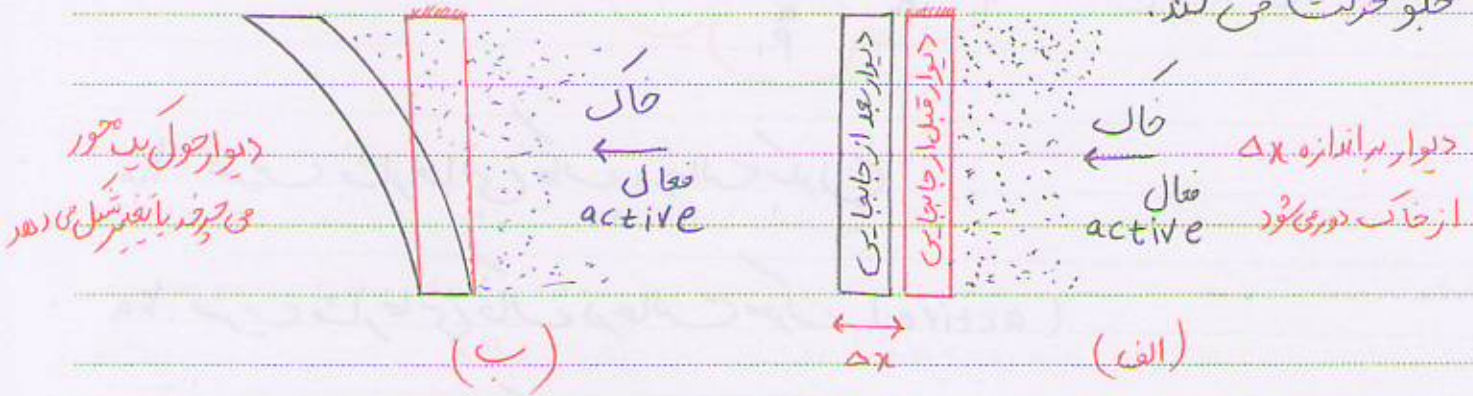 جلو حرکت می کند.
دیوار به اندازه Δx
از خاک دور می شود
خاک
فعال
active
دیوار قبل از جابجایی
دیوار بعد از جابجایی
Δx
(الف)
خاک
فعال
active
دیوار حول یک محور
می چرخد یا تغییر شکل می دهد
(ب)